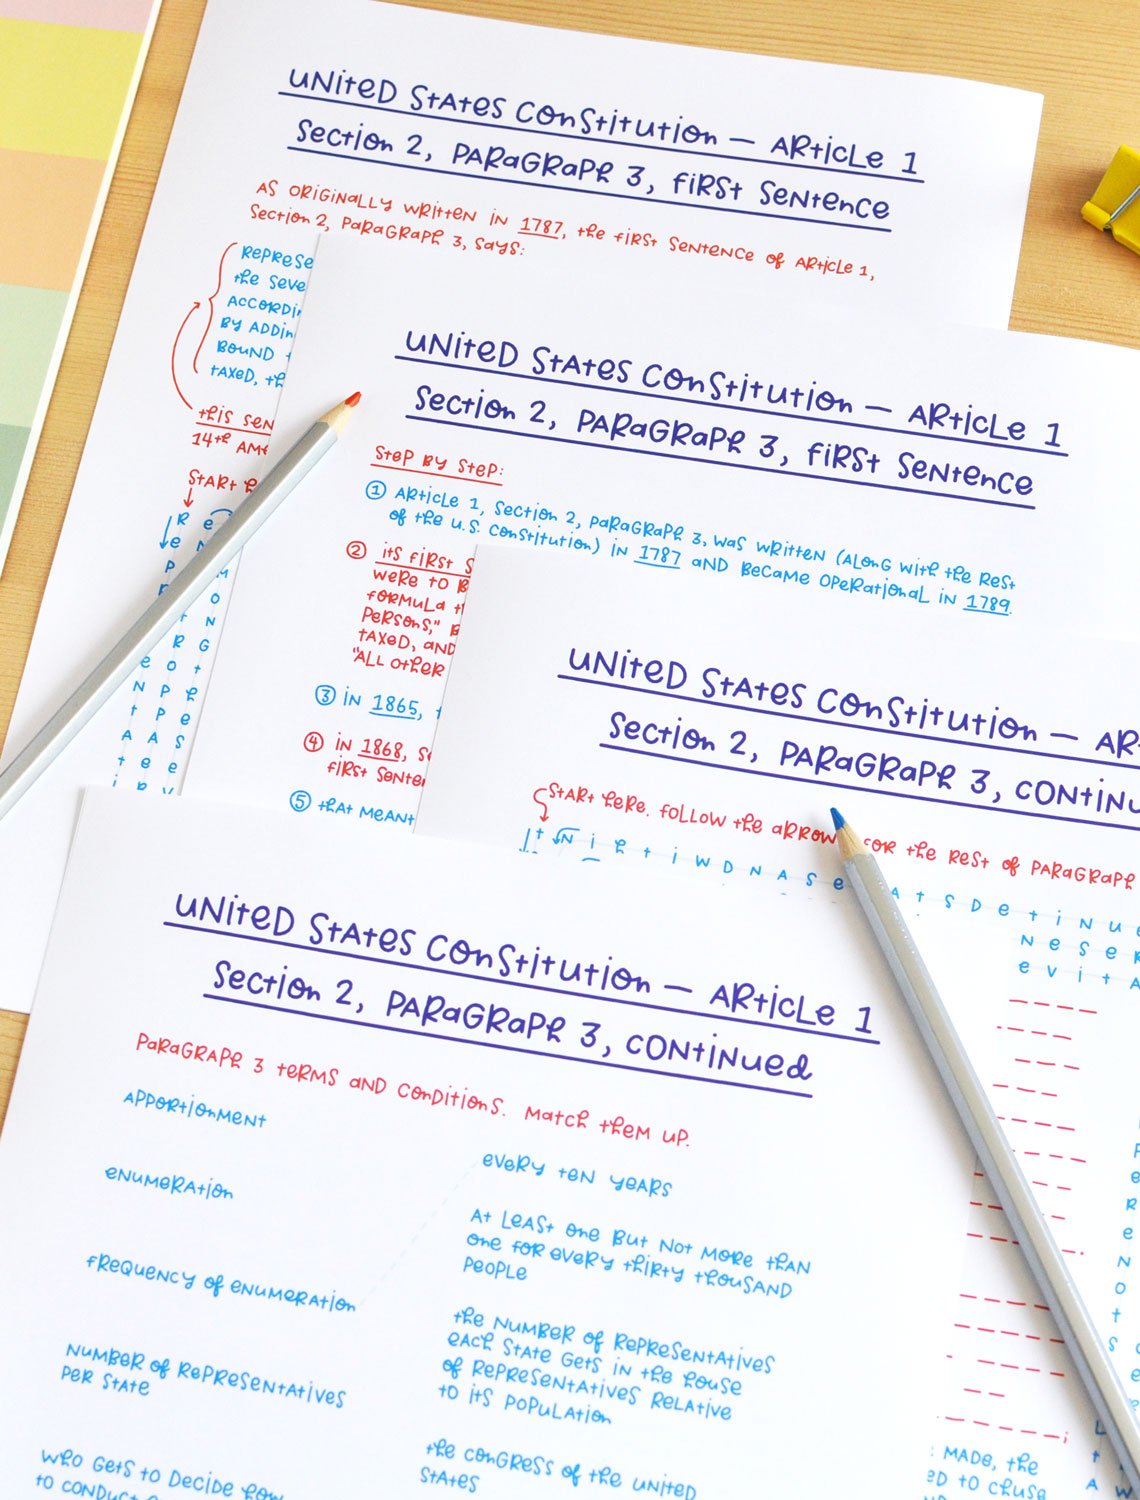 United States Constitution — Article 1
Section 2, Paragraph 3, First Sentence
As originally written in 1787, the first sentence of Article 1,
Section 2, Paragraph 3, says:
the
Accordin
By adding
Bound
taxed, th
this sen
14th Am
Start
United States Constitution — Article 1
Section 2, Paragraph 3, First Sentence
Step by step:
① Article 1, Section 2, Paragraph 3, was written (along with the rest
of the U.S. Constitution) in 1787 and became operational in 1789.
② its first s
were to b
formula t
persons," b
taxed, and
"all other
③ in 1865,
④ in 1868, s
first senten
⑤ that meant
United States Constitution — Ar
Section 2, Paragraph 3, continu
Start here. Follow the arrow for the rest of Paragraph
t N i h t i w D N A S e
A t S D e t i N u
N e S e R
e v i t A
made, the
ed to cause
United States Constitution — Article 1
Section 2, Paragraph 3, continued
Paragraph 3 terms and conditions. Match them up.
Apportionment
enumeration
frequency of enumeration
number of representatives
per state
who gets to decide how
to conduct
every ten years
At least one but not more than
one for every thirty thousand
people
the number of representatives
each state gets in the House
of Representatives relative
to its population
the Congress of the United
States